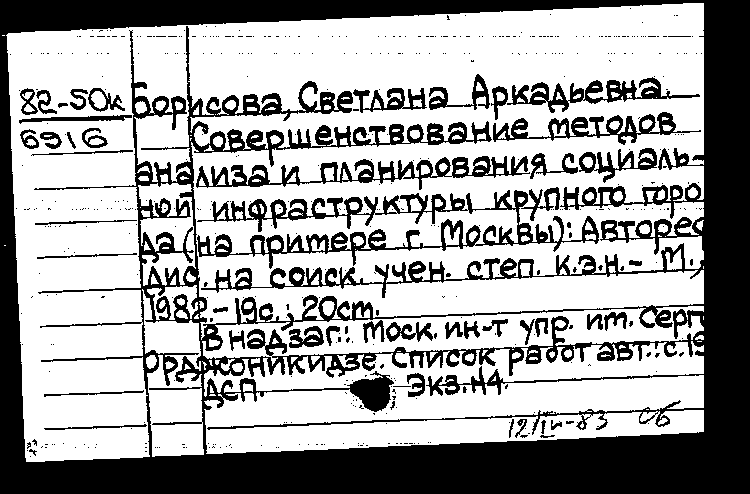 82-50к Борисова, Светлана Аркадьевна.
6916 Совершенствование методов
анализа и планирования социаль-
ной инфраструктуры крупного горо
да (на примере г. Москвы): Авторе
дис. на соиск. учен. степ. к.э.н.- М.,
1982.- 19с.; 20ст.
В надзаг.: Моск. ин-т упр. им. Серг
Орджоникидзе. Список работ авт.: с.19
ДСП. Экз.Н4.
12/IV-83 сб